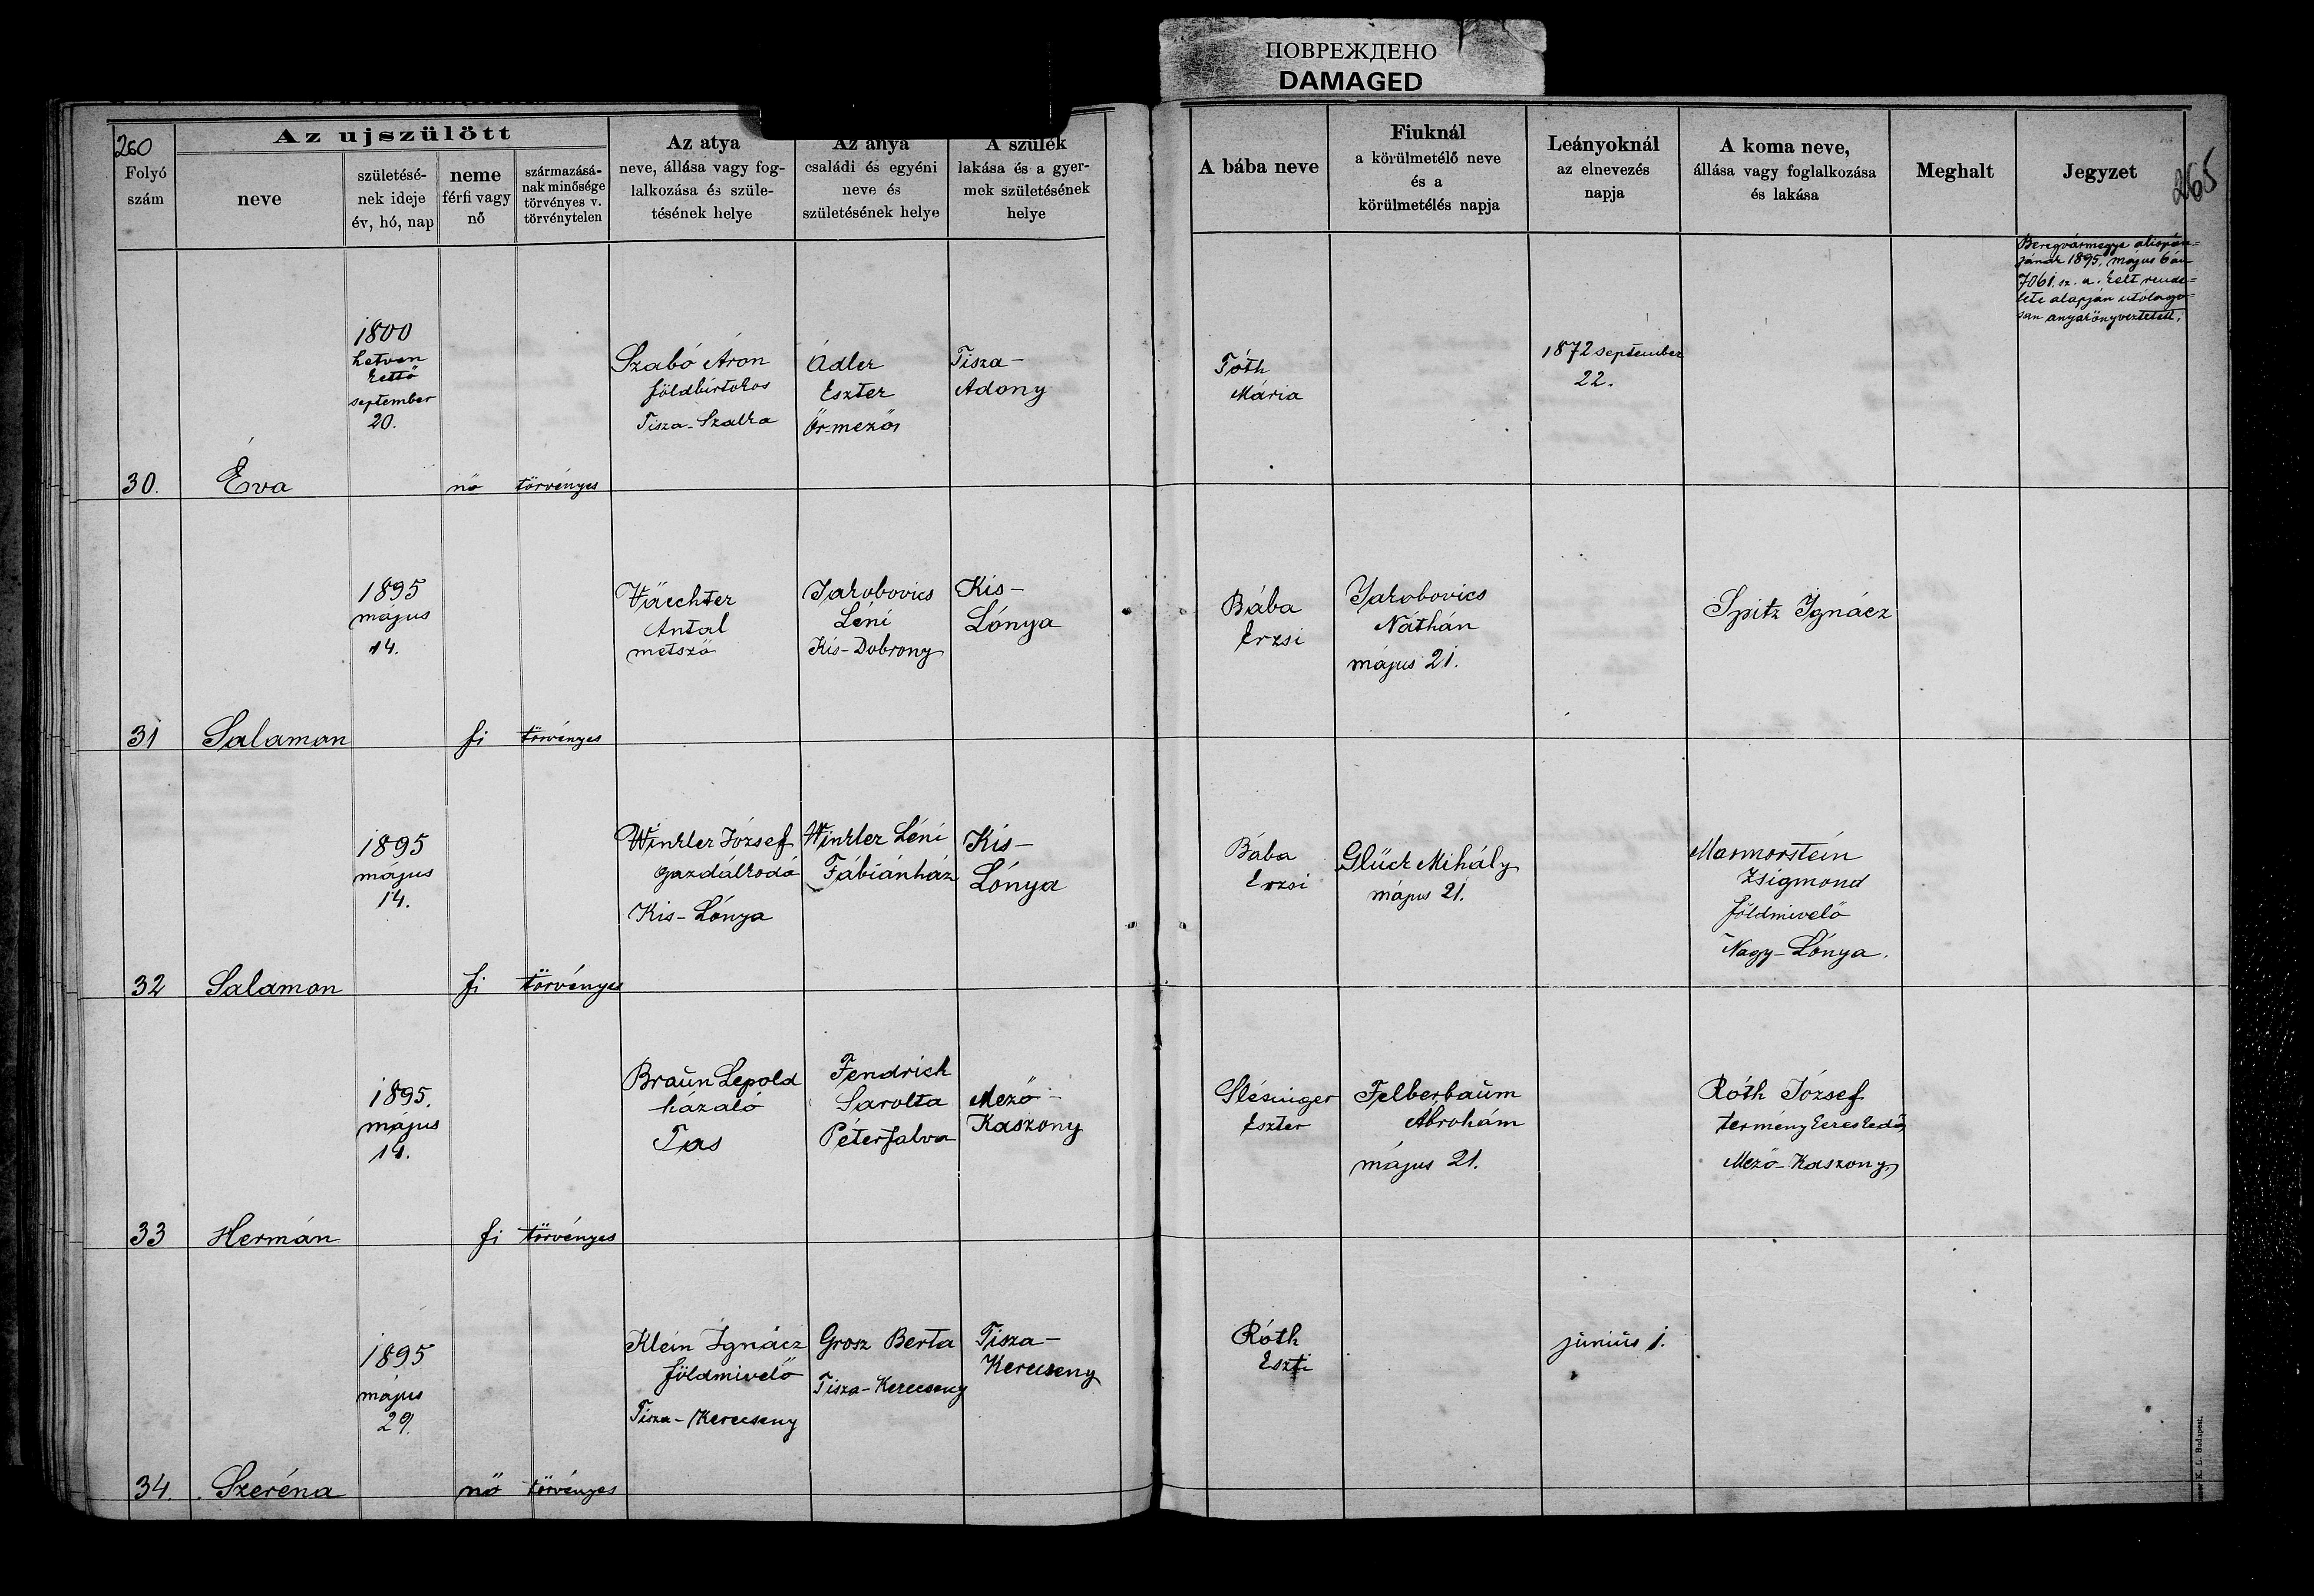 ПОВРЕЖДЕНО
DAMAGED
260
265
Az ujszülött
Folyó
szám
neve
születésé-
nek ideje
év, hó, nap
neme
férfi vagy
nő
származásá-
nak minősége
törvényes v.
törvénytelen
Az atya
neve, állása vagy fog-
lalkozása és szüle-
tésének helye
Az anya
családi és egyéni
neve és
születésének helye
A szülék
lakása és a gyer-
mek születésének
helye
A bába neve
Fiuknál
a körülmetélő neve
és a
körülmetélés napja
Leányoknál
az elnevezés
napja
A koma neve,
állása vagy foglalkozása
és lakása
Meghalt
Jegyzet
30.
Éva
1800
hetven
kettő
september
20.
nő
törvényes
Szabó Áron
földbirtokos
Tisza-Szalka
Adler
Eszter
Őr-mező
Tisza-
Adony
Tóth
Mária
1872 september
22.
Beregvármegye alispán-
jának 1895, május 6án
7061. sz. a. kelt rende-
lete alapján utólago-
san anyakönyveztetett.
31
Salamon
1895
május
14.
fi
törvényes
Wäechter
Antal
metsző
Jakobovics
Léni
Kis-Dobrony
Kis-
Lónya
Bába
Erzsi
Jakobovics
Náthán
május 21.
Spitz Ignácz
32
Salamon
1895
május
14.
fi
törvényes
Winkler József
gazdálkodó
Kis-Lónya
Winkler Léni
Fábiánház
Kis-
Lónya
Bába
Erzsi
Glück Mihály
május 21.
Marmorstein
Zsigmond
földmivelő
Nagy-Lónya.
33
Hermán
1895.
május
14.
fi
törvényes
Braun Lepold
házaló
Tas
Fendrich
Sarolta
Péterfalva
Mező-
Kaszony
Slésinger
Eszter
Felberbaum
Ábrohám
május 21.
Róth József
terménykereskedő
Mező-Kaszony
34.
Szeréna
1895
május
29.
nő
törvényes
Klein Ignácz
földmivelő
Tisza-Kerecseny
Grosz Berta
Tisza-Kerecseny
Tisza-
Kerecseny
Róth
Eszti
június 1.
K. L. Budapest.